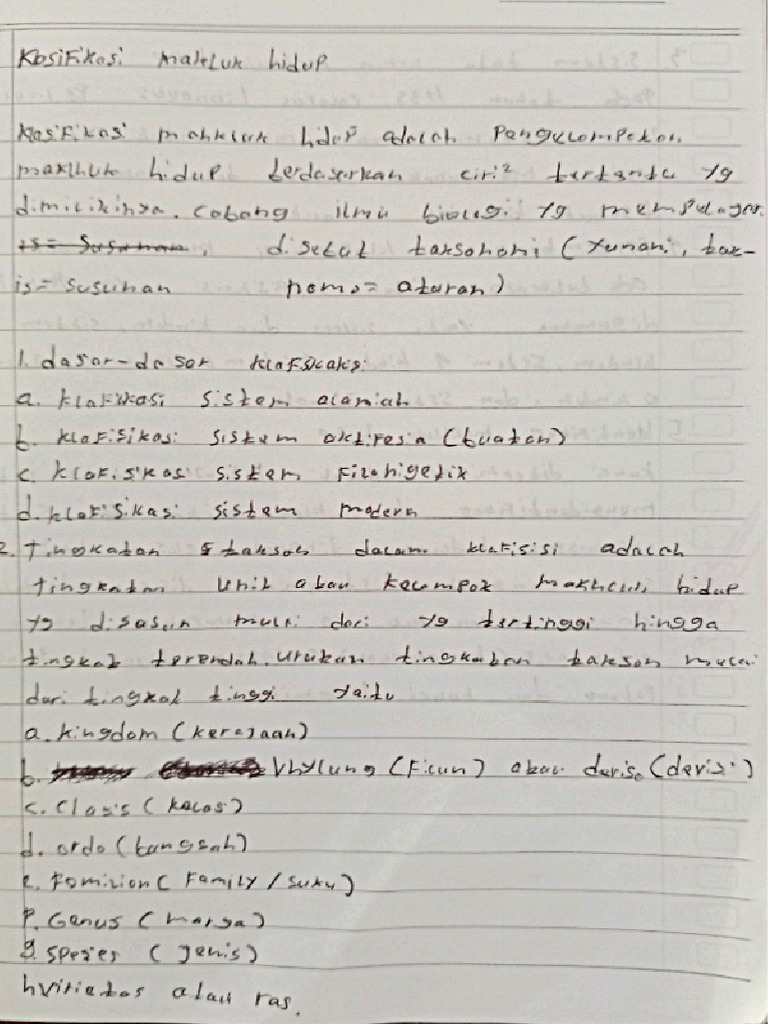 Klasifikasi makluk hidup
Klasifikasi mahkluk hidup adalah Pengelompokan
makhluk hidup berdasarkan ciri² tertentu yg
dimilikinya. Cabang ilmu biologi yg mempelajari
is = Susunan, disebut taksonomi (Yunani, tax-
is = susunan nomo = aturan)
1. dasar-dasar klafsicakis:
a. klafikasi sistem alamiah
b. klafisikasi sistem aktifesia (buatan)
c. klafisikasi sistem Filohigetik
d. klafisikasi sistem modern
2. Tingkatan takson dalam klafisisi adalah
tingkatan unit atau kelumpok makhluk hidup
yg disasun mulai dari yg tertinggi hingga
tingkat terendah. Urukan tingkatan takson mulai
dari tingkat tinggi yaitu
a. kingdom (kerajaan)
b. Vhylung (Filun) atau deriso (derisi)
c. Classis (kelas)
d. ordo (bangsah)
e. Fomilion (Family / suku)
f. Genus (marga)
g. spesies (jenis)
h viritetas atau ras.